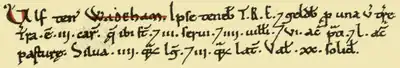 Vlf ten' Wadeham. Ipse teneb' T.R.E. 7 geldb' p una v̄ træ
Tra . ē . III . car . q̄ ibi st̄ . 7 III . serui . 7 IIII . uilli . 7 VI . ac̄ p̃ti . 7 L . ac̄
pasturę . Silua . IIII . qr̃ lg̃ . 7 III . qr̃ lat̃ . Val̃ . XX . solid'.